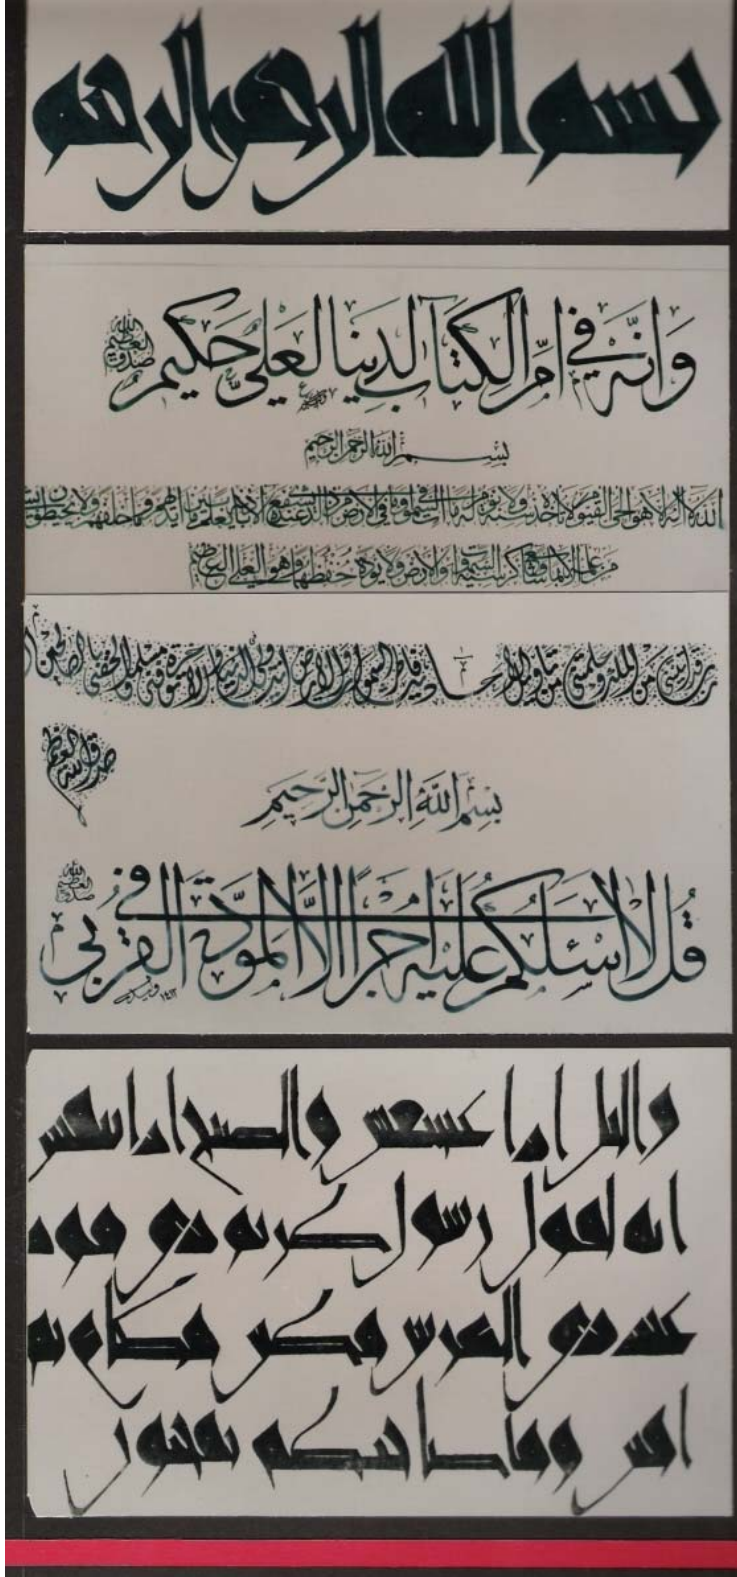 بسم الله الرحمن الرحيم
وَإِنَّهُ فِي أُمِّ الْكِتَابِ لَدَيْنَا لَعَلِيٌّ حَكِيمٌ
صدق الله العظيم
بِسْمِ اللهِ الرَّحْمنِ الرَّحِيمِ
الله لا اله الا هو الحي القيوم لا تأخذه سنة ولا نوم له ما في السموات وما في الارض من ذا الذي يشفع عنده الا باذنه يعلم ما بين ايديهم وما خلفهم ولا يحيطون بشئ
من علمه الا بما شاء وسع كرسيه السموات والارض ولا يؤده حفظهما وهو العلي العظيم
رب قد آتيتني من الملك وعلمتني من تأويل الاحاديث فاطر السموات والارض انت وليي في الدنيا والآخرة توفني مسلما والحقني بالصالحين
صدق الله العظيم
بِسْمِ اللهِ الرَّحْمنِ الرَّحِيمِ
قُل لا اسئلكم عليه اجرًا الا المودّة في القربى
صدق الله العظيم
١٤١٢
والليل اذا عسعس والصبح اذا تنفس
انه لقول رسول كريم ذي قوة
عند ذي العرش مكين مطاع ثم
امين وما صاحبكم بمجنون